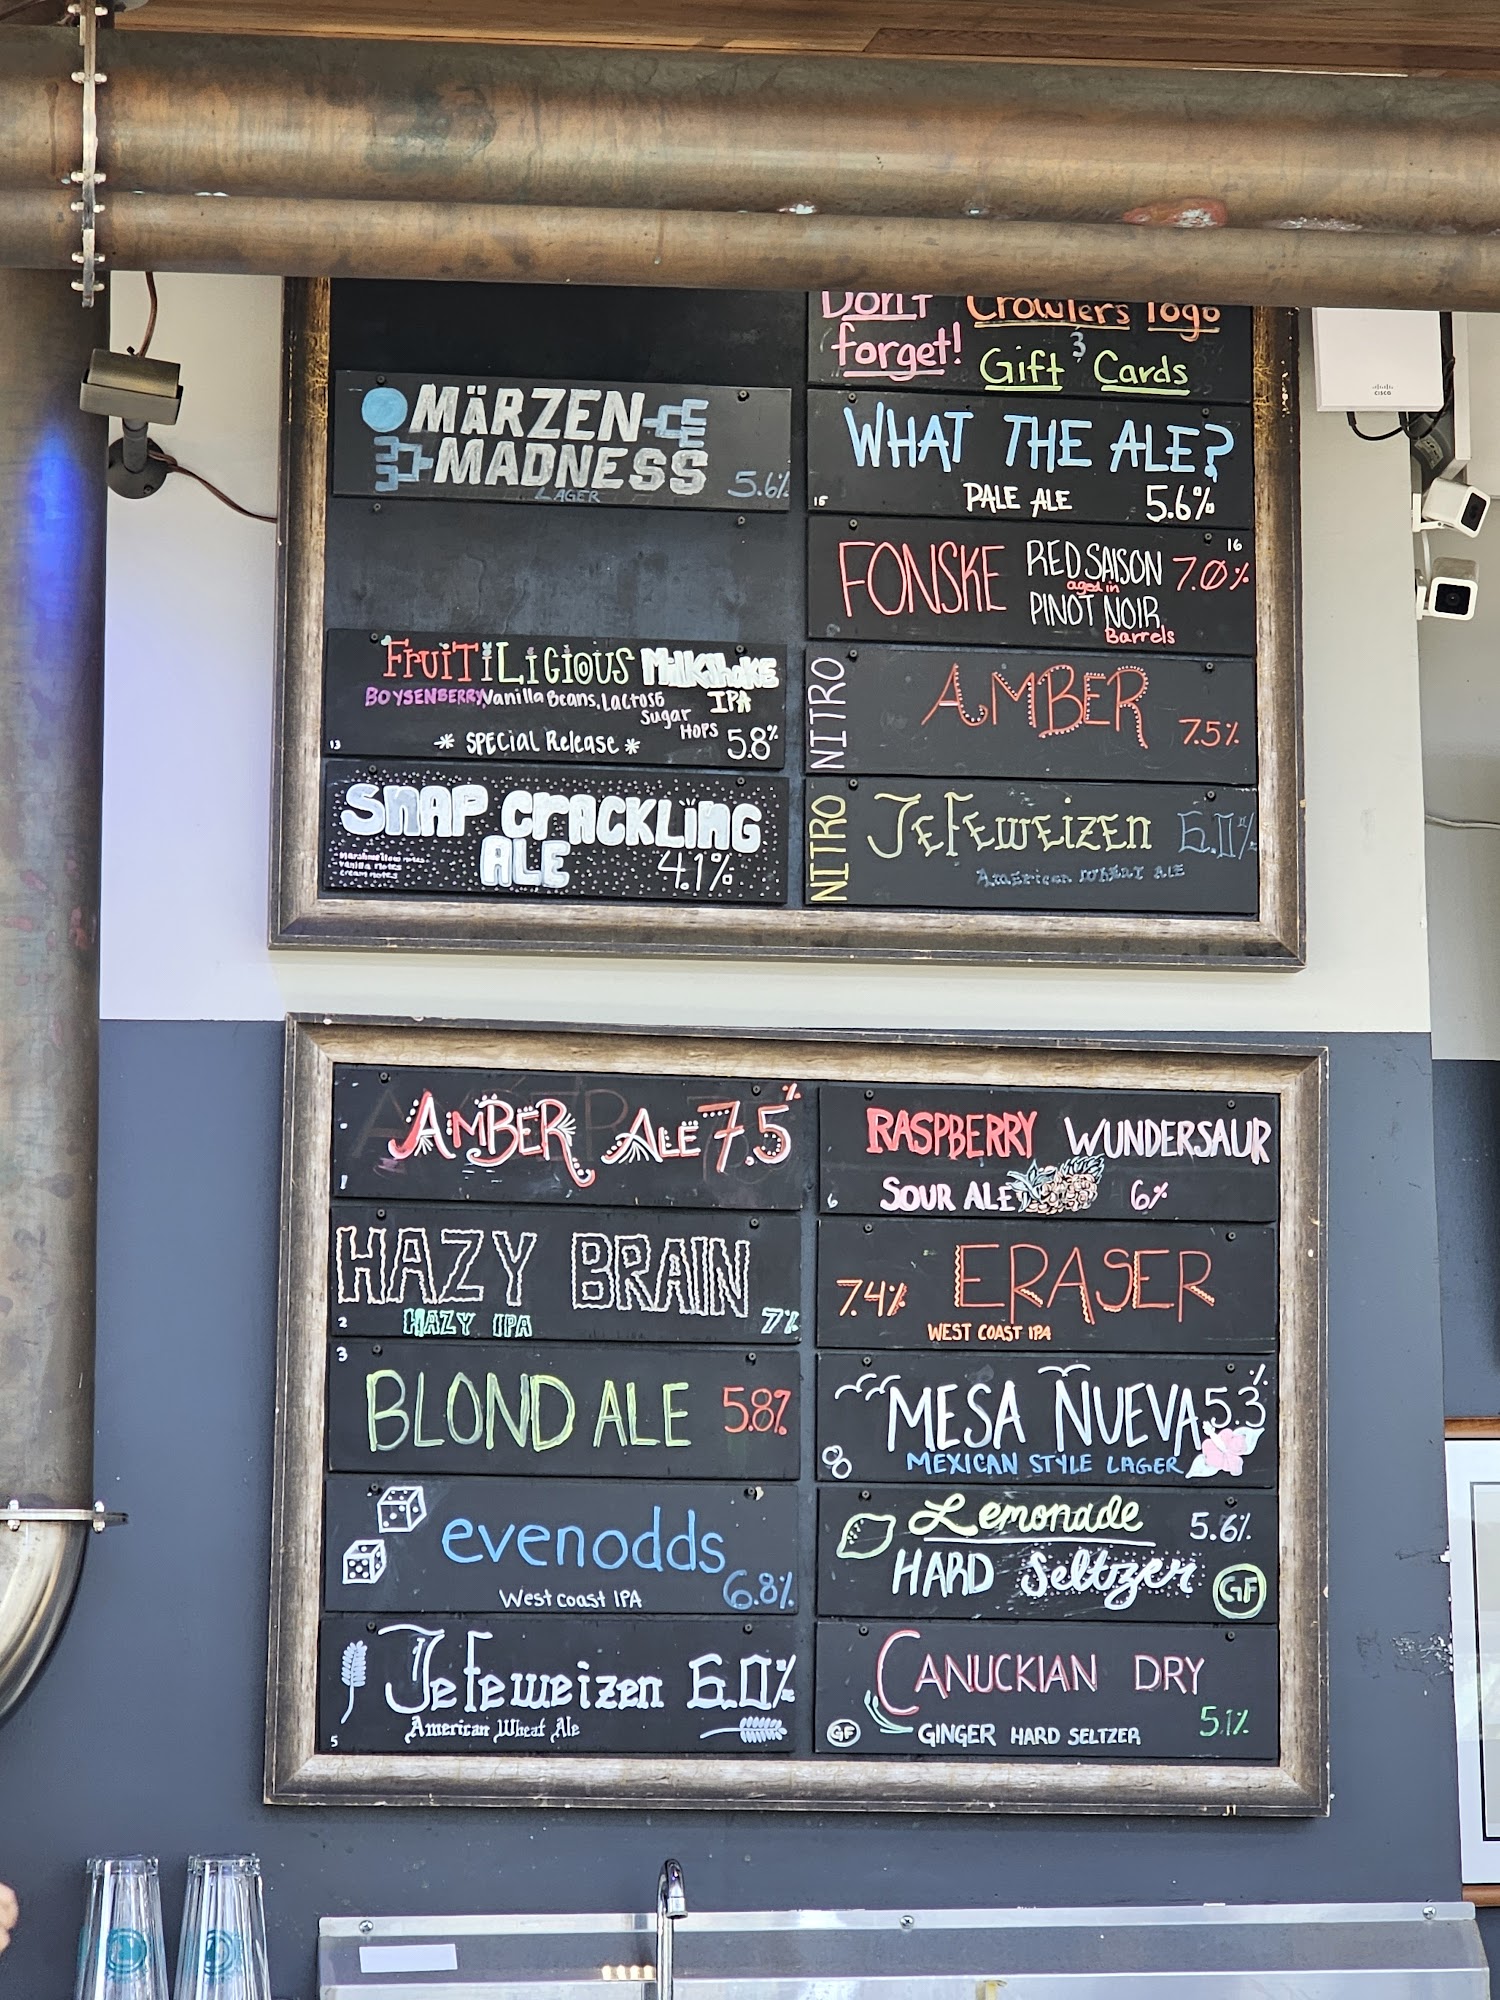 Don't
forget!
Crowlers Togo
&
Gift Cards
MÄRZEN
MADNESS
LAGER
5.6%
FRUITILIGIOUS Milkshake
IPA
BOYSENBERRY, Vanilla Beans, Lactose
Sugar
HOPS
* SPECIAL Release *
5.8%
13
SNAP CRACKLING
ALE
4.1%
marshmellow notes
vanilla notes
cream notes
WHAT THE ALE?
15
PALE ALE
5.6%
FONSKE
RED SAISON
aged in
PINOT NOIR
Barrels
7.0%
16
NITRO
AMBER
7.5%
NITRO
JEFEWEIZEN
6.0%
American Wheat Ale
AMBER ALE 7.5%
1
HAZY BRAIN
2
HAZY IPA
7%
3
BLOND ALE
5.8%
evenodds
West coast IPA
6.8%
Jefeweizen 6.0%
American Wheat Ale
5
RASPBERRY WUNDERSAUR
6
SOUR ALE
6%
ERASER
7.4%
WEST COAST IPA
MESA NUEVA
5.3%
8
MEXICAN STYLE LAGER
Lemonade
HARD Seltzer
5.6%
GF
CANUCKIAN DRY
GF
GINGER HARD SELTZER
5.1%
CISCO